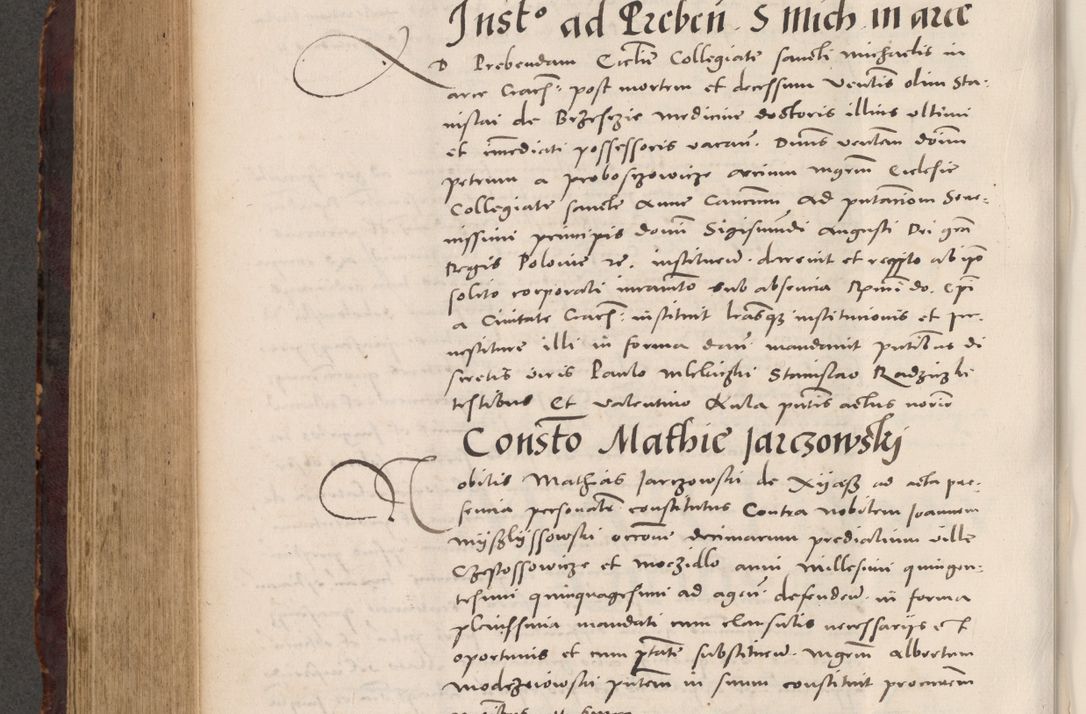 Insto ad Preben. S Mich in arce
D Prebendam Ecclie Collegiate sancti Michaelis in
arce Cracn: post mortem et decessum ventis olim Sta-
nislai de Brzeszcze medicine doctoris illius ultimi
et imediati possessoris vacan. Duns ventem dnum
petrum a proboszowicze arcium mgrm Ecclesie
Collegiate sancte Anne Canonm ad pntanom Sere-
nissimi principis domi Sigismudi Augusti Dei gra
Regis Polonie rc. instituen. decreuit et recepto ab ipo
solito corporali iuramto sub absencia Rmi do. Epi
a Ciuitate Cracn: instituit lrasq3 institucionis et in-
uestiture illi in forma dari mandauit pntibus di
scretis viris Paulo Stanislao
testibus Et Valentino Kula pntis actus norio
Consto Mathie Jarczowskj
Nobilis Mathias Jarczowski de Xijasz ad acta pre-
sencia personalr constitutus Contra nobilem Joannem
Mijszlijssowski occone decimarum predialium ville
Czestossowicze et moczidlo anni Millesimi quingen-
tesimi quinquagesimi ad agen. defenden. in forma
plenissima mandati cum clausulis necessarijs et
oportunis et cum ptate substituen. mgrm Albertum
Modrzeiowski pntem in suum constituit procurem